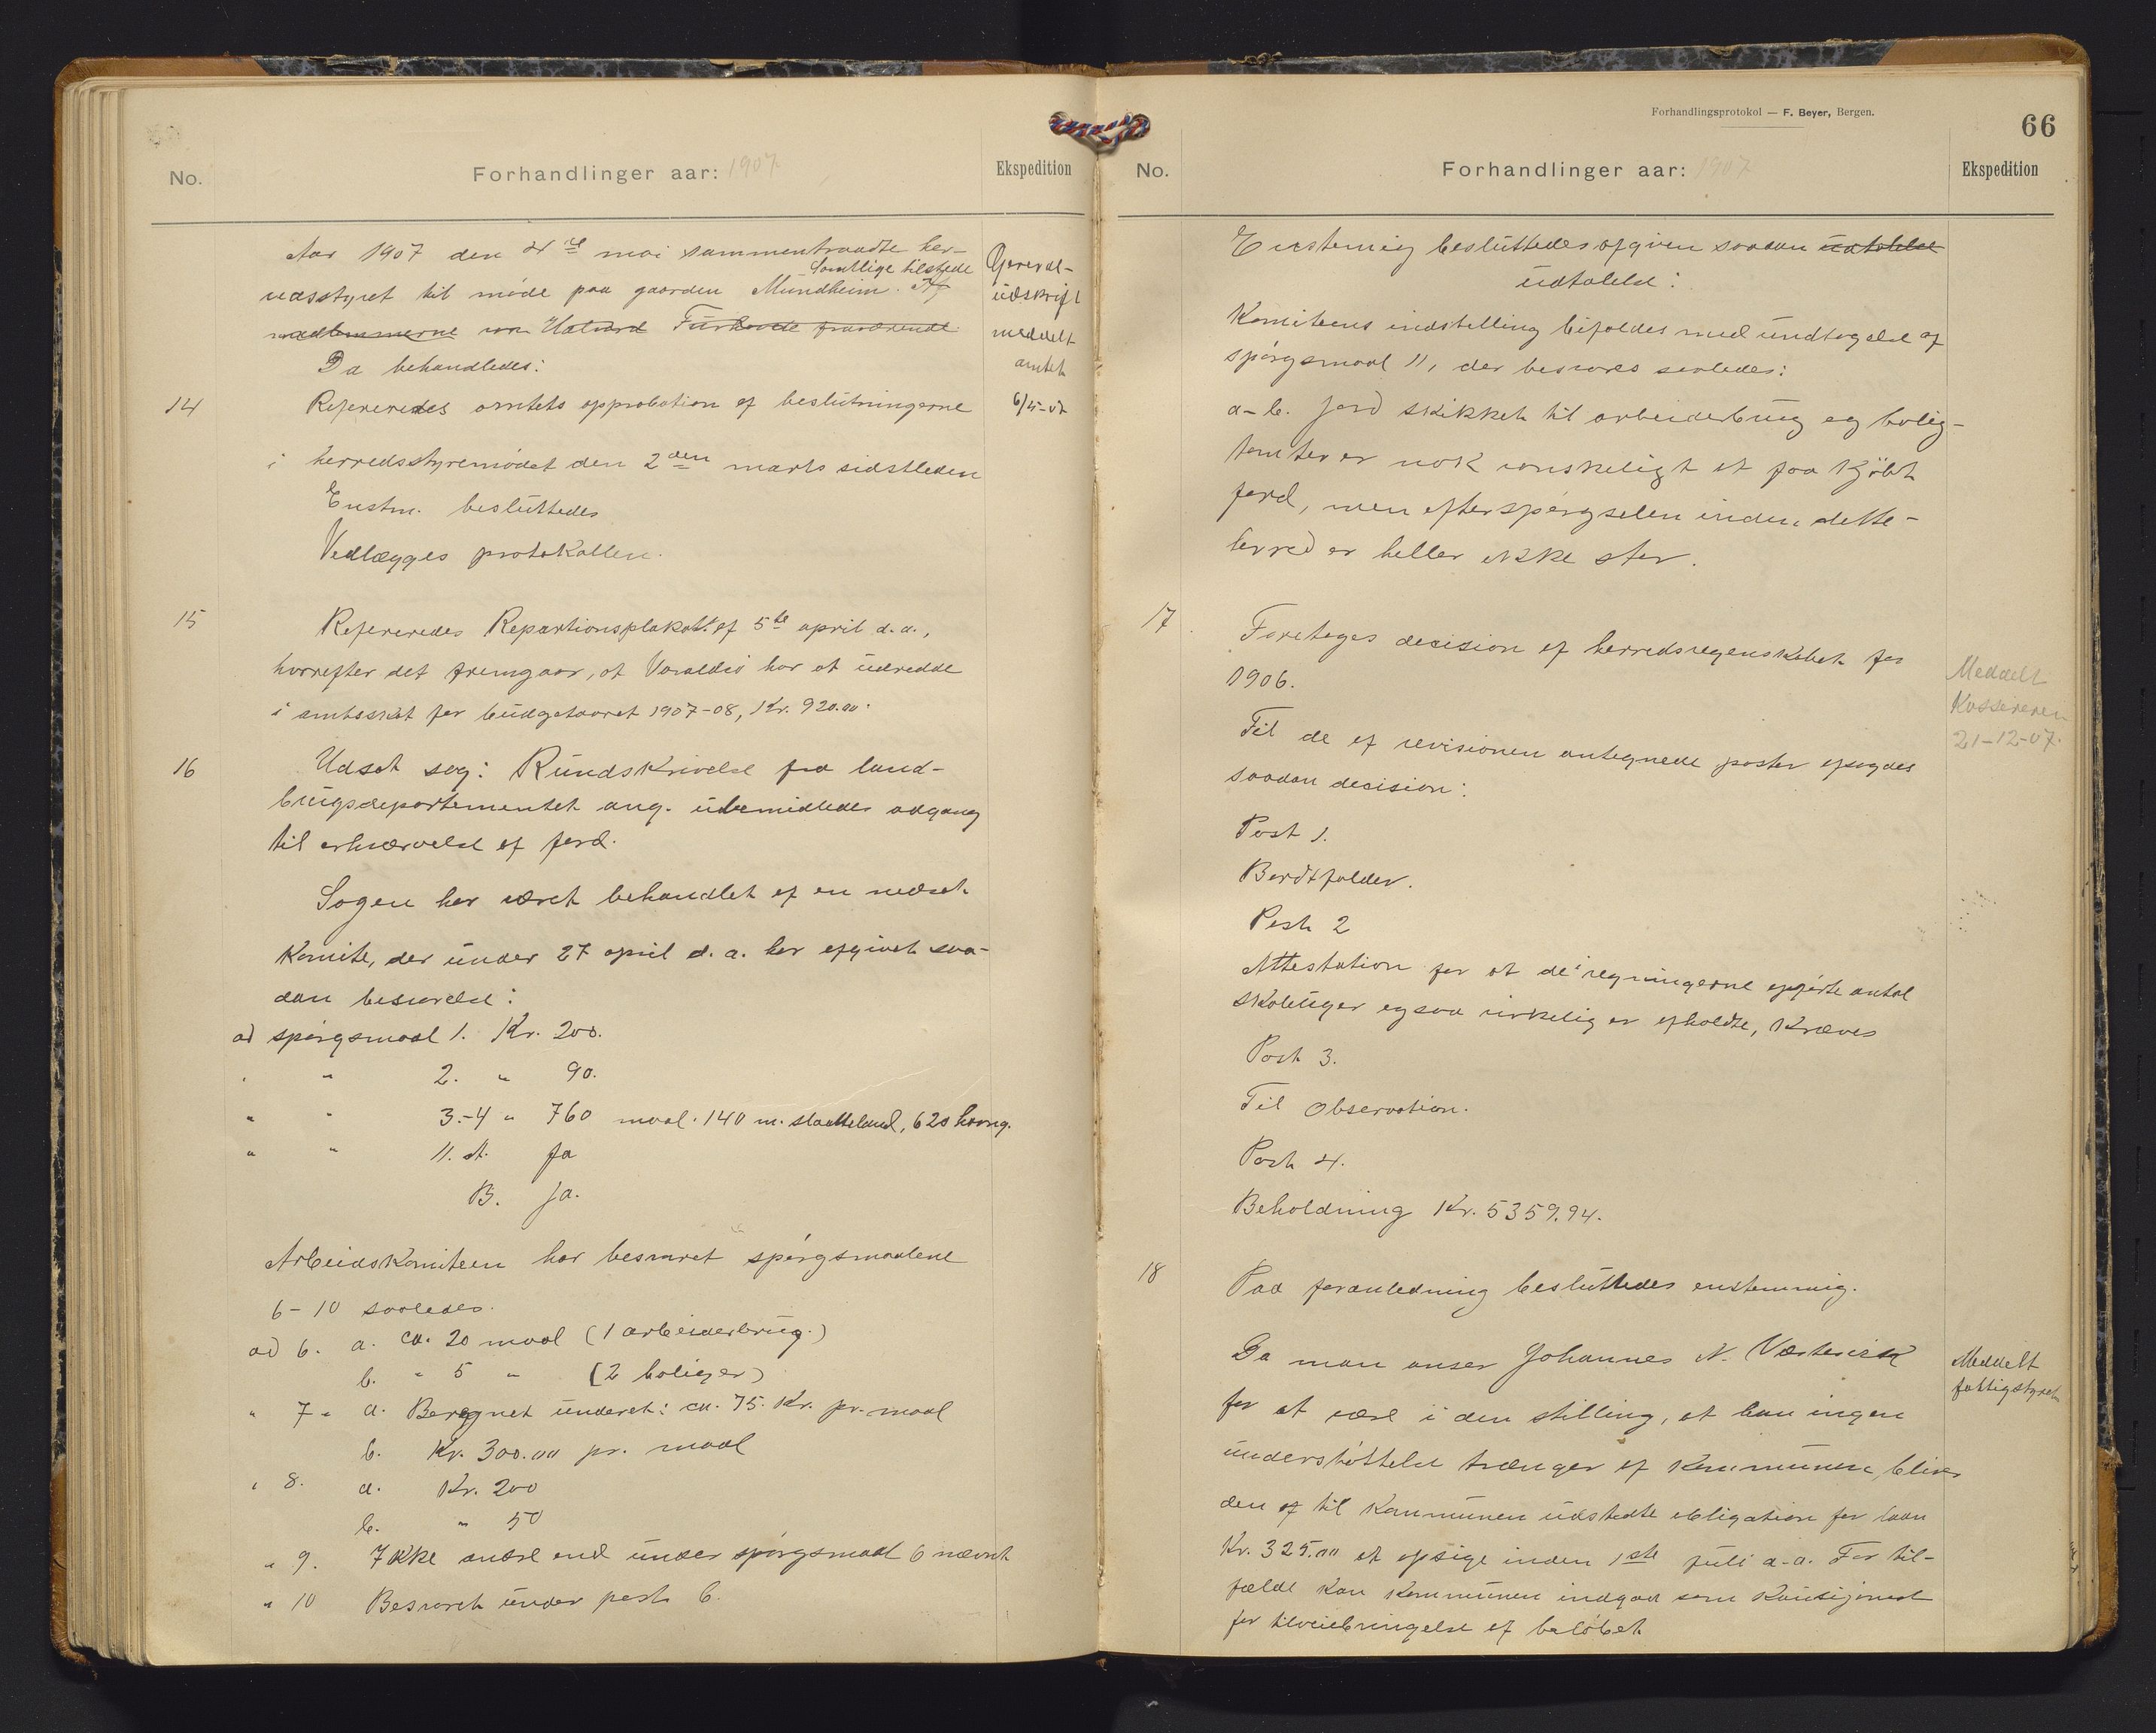 No.
Forhandlinger aar: 1907
Ekspedition
Aar 1907 den 4de mai sammentraadte her-
Samtlige tilstede
redsstyret til møde paa gaarden Mundheim. Af
medlemmerne var Halvard Turhovde fraværende
Da behandledes:
General-
udskrift
meddelt
amtet
6/5-07
14
Refereredes amtets approbation af beslutningerne
i herredsstyremødet den 2den marts sidstleden
Enstm. besluttedes
Vedlægges protokollen.
15
Refereredes Repartionsplakat af 5te april d.a.,
hvorefter det fremgaar, at Varaldsø har at udredde
i amtsskat for budgetaaret 1907-08, Kr. 920.00.
16
Udsat sag: Rundskrivelse fra land-
brugsdepartementet ang. ubemidledes adgang
til erhvervelse af jord.
Sagen har været behandlet af en nedsat
Komite, der under 27 april d.a. har afgivet saa-
dan besvarelse:
ad spørgsmaal 1. Kr. 200.
" " 2. " 90.
" " 3.-4 " 760 maal. 140 m. slaatteland, 620 havng.
" " 11. A. Ja
B. Ja.
Arbeidskomiteen har besvaret spørgsmaalene
6-10 saaledes.
ad 6. a. ca. 20 maal (1 arbeiderbrug.)
b. " 5 " (2 boliger)
" 7 " a. Beregnet underet: ca. 75. Kr. pr. maal
b. Kr. 300.00 pr. maal
" 8. a. Kr. 200
b. " 50
" 9. Ikke andre end under spørgsmaal 6 nævnt
" 10 Besvaret under post 6.
Forhandlingsprotokol — F. Beyer, Bergen.
66
No.
Forhandlinger aar: 1907
Ekspedition
Enstemig besluttedes afgiven saadan udtalelse
udtalelse:
Komiteens indstilling bifaldes med undtagelse af
spørgsmaal 11, der besvares saaledes:
a-b. Jord skikket til arbeiderbrug og bolig-
tomter er nok vanskeligt at faa kjøbt
jord, men efterspørgselen inden dette-
herred er heller ikke stor.
17.
Foretoges decision af herredsregenskabet for
1906.
Meddelt
Kassereren
21-12-07.
Til de af revisionen antegnede poster afsagdes
saadan decision:
Post 1.
Bortfalder.
Post 2
Attestation for at de i regningerne opførte antal
skoleuger ogsaa virkelig er afholdte, kræves
Post 3.
Til Observation.
Post 4.
Beholdning Kr. 5359.94.
18
Paa foranledning besluttedes enstemmig.
Da man anser Johannes N. Vestervik
for at være i den stilling, at han ingen
understøttelse trænger af kommunen, blive
den af til kommunen udstedte obligation for laan
Kr. 325.00 at opsige inden 1ste juli d.a. For til-
fælde kan kommunen indgaa som kausjonist
for tilveiebringelse af beløbet
Meddelt
fattigstyret